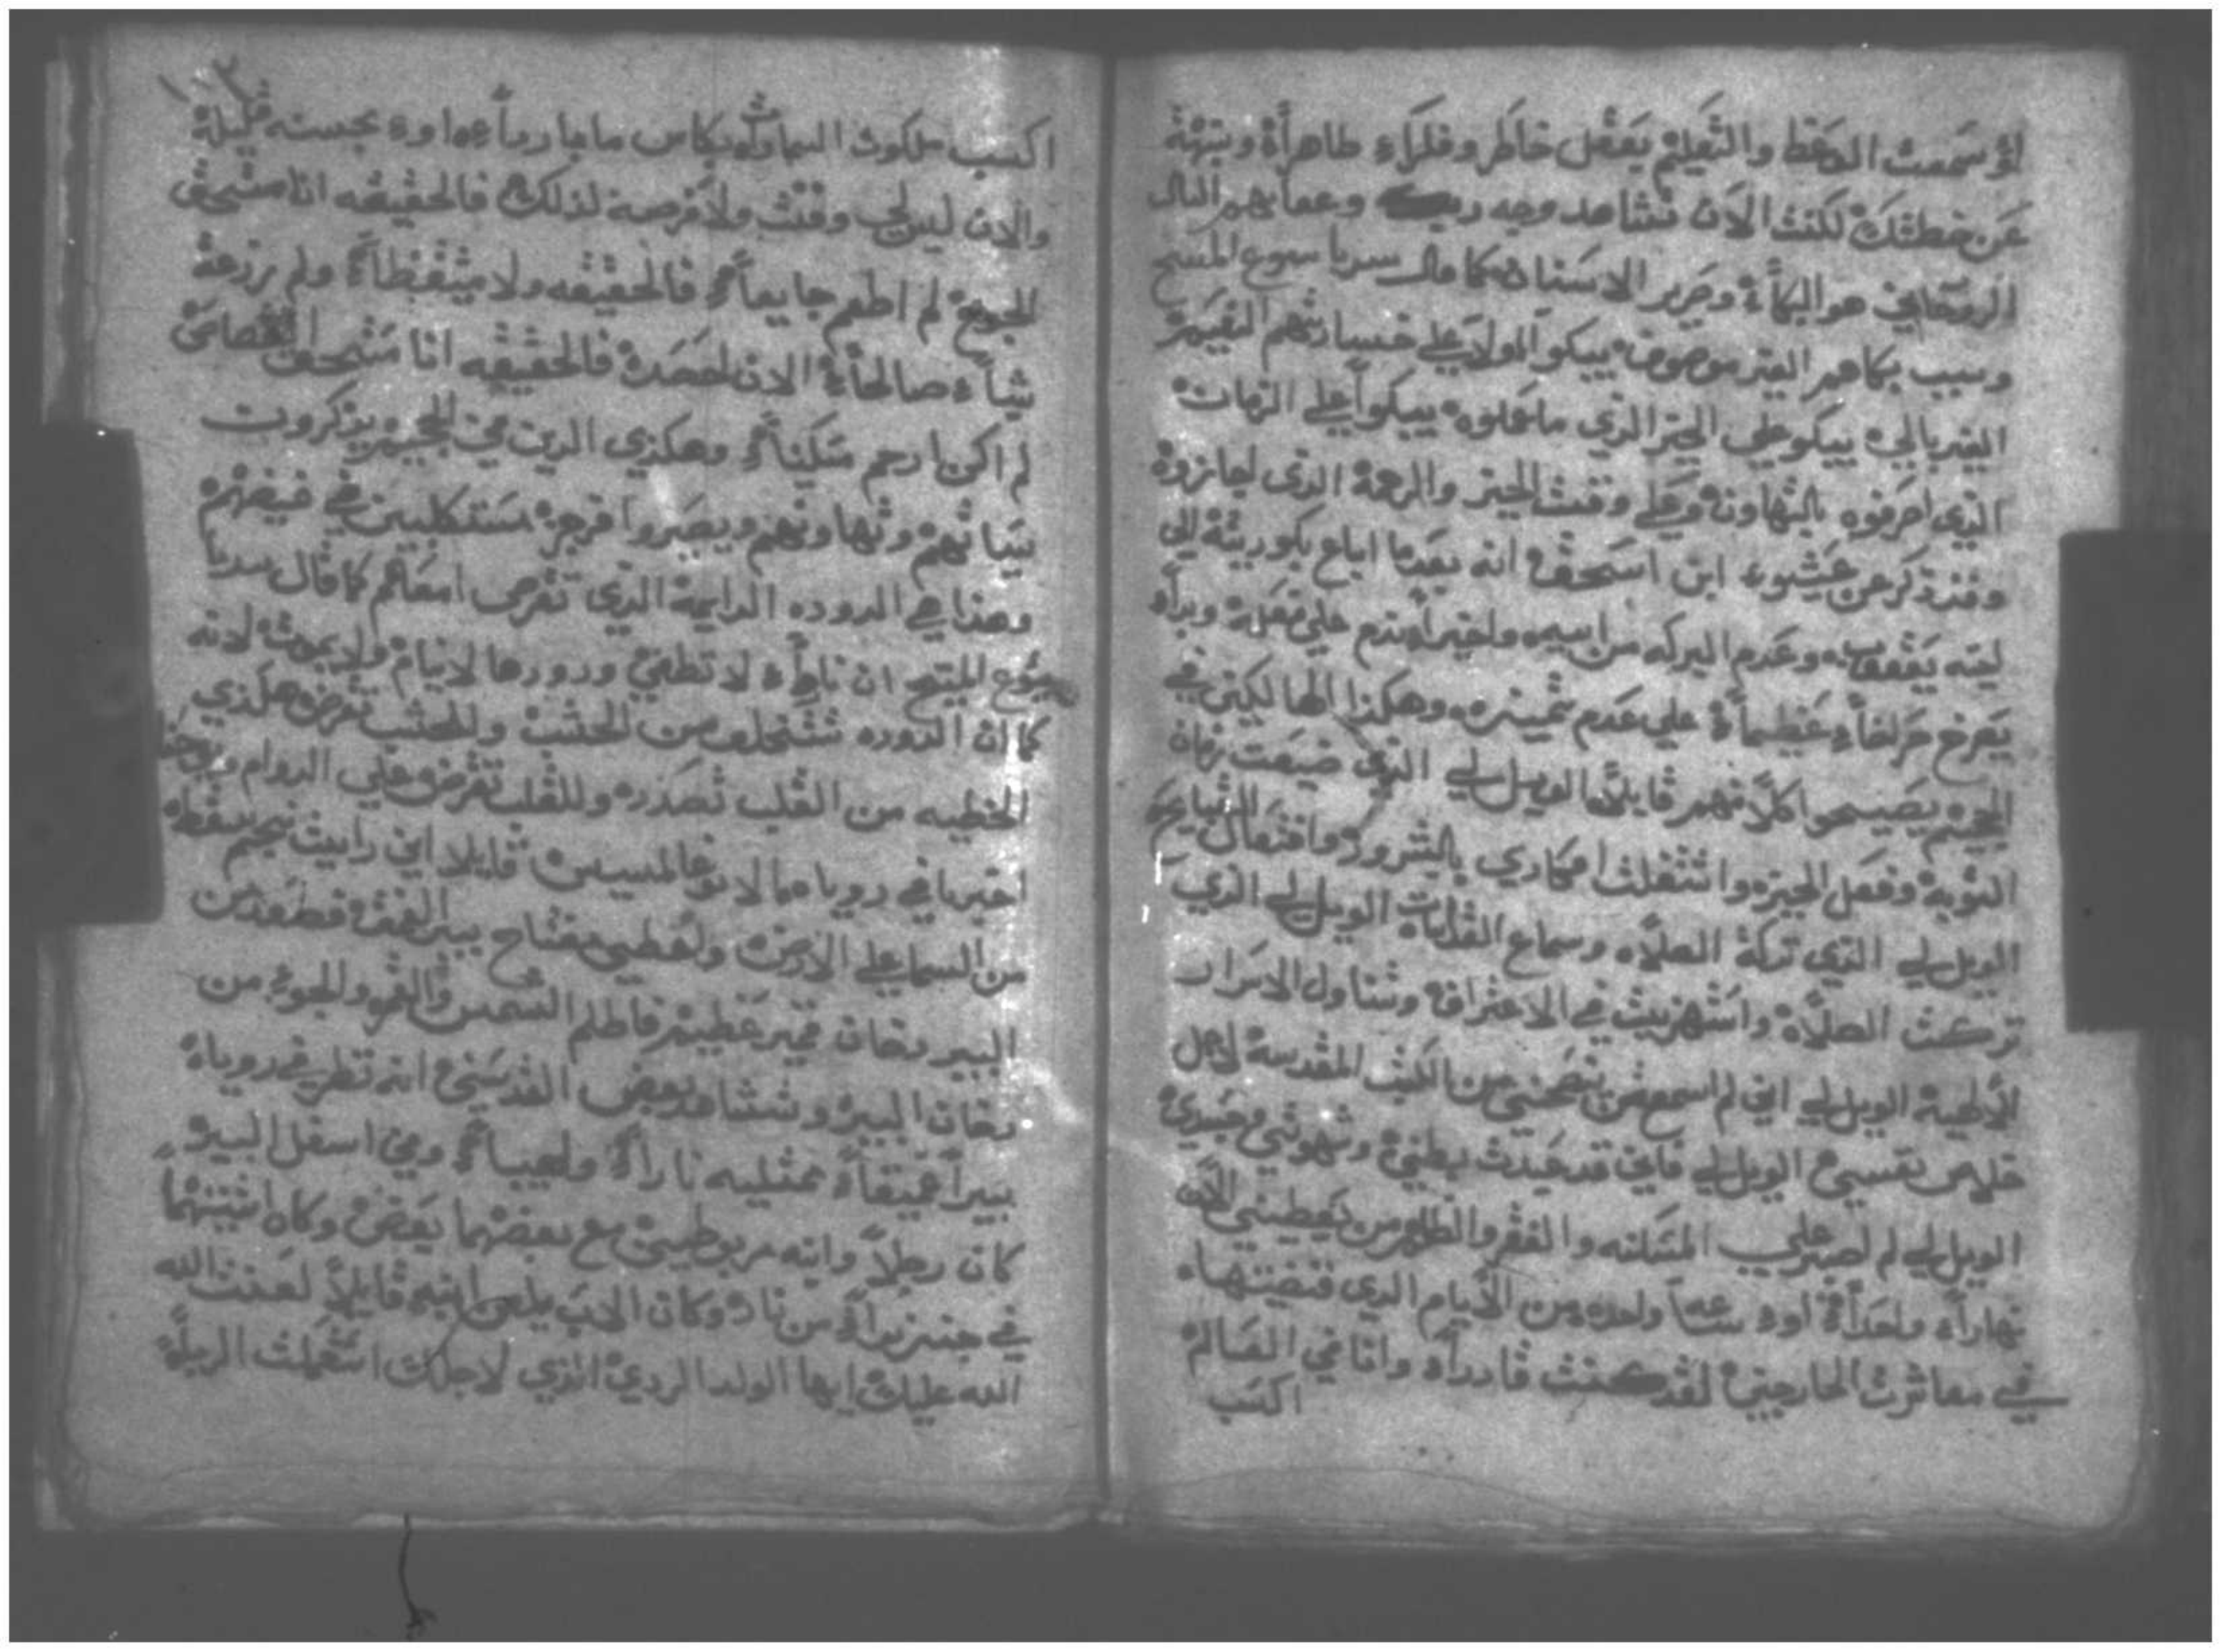 لو سمعت الوعظ والتعليم بعقل خاطر وفكراً طاهراً ونبهة
عن خطيتك لكنت الان تشاهد وجه ربك وعقابهم التالت
الروحاني هو البكاء وصرير الاسنان كما قال سيدنا يسوع المسيح
وسبب بكاهم الغير موصوف يبكوا اولا على خسارتهم النعيم
الغير بالي يبكو على الخير الذي ما عملوه يبكوا على الزمان
الذي اصرفوه بالتهاون وعلى وقت الخير والرحمة الذي اجازوه
وقد ذكر عن عيشو ابن اسحق انه بعدما اباع بكوريته الى
اخيه يعقوب وعدم البركه من ابيه واخيراً ندم على فعله وبدا
يصرخ صراخاً عظيماً على عدم تمييزه وهكذا الهالكين في
الجحيم يصيحوا كلاً منهم قايلاً الويل لي الذي ضيعت زمان
التوبة وفعل الخير واشتغلت افكاري بالشرور وافتعال القبايح
الويل لي الذي تركة الصلاه وسماع القداسات الويل لي الذي
تركت الصلاة واستهزيت في الاعتراف وتناول الاسرار
الالهية الويل لي اني لم اسمع من ينصحني من الكتب المقدسة لاجل
خلاص نفسي الويل لي فاني قد عبدت بطني وشهوتي جسدي
الويل لي لم اصبر على المسكنه والفقر والظلم من يعطيني الان
نهاراً واحداً او ساعة واحده من الايام الذي قضيتها
في معاشرت الخارجين لقد كنت قادراً وانا في العالم
اكسب
اكسب ملكوت السماوات بكاس ماء بارداً او بحسنه قليلة
والان ليس لي وقت ولا فرصه لذلك فالحقيقه انا مستحق
الجوع لم اطعم جايعاً فالحقيقه ولا ولم يزرعة
شياً صالحاً الان لحصده فالحقيقه انا مستحق القصاص
لم اكن ارحم مسكيناً وهكذي الذين في الجحيم يذكروت
سياتهم وتهاونهم ويصيروا في غيضهم
وهذا هي الدوده الدايمة الذي تقرص امعاهم كما قال سيدنا
يسوع المسيح ان ناره لا تطفي ودودها لا ينام ولا يموت لانه
كما ان الدوده تتخلف من الخشب وللخشب تقرض هكذي
الخطيه من القلب تصدر وللقلب تقرض على الدوام ويوحنا
اخبرنا في روياه قايلا اني رايت نجم سقط
من السما على الارض واعطي مفتاح بير الغمق فصعد من
البير دخان عظيم فاظلم الشمس والقمر والجو من
دخان البير وشاهد بعض القديسين انه نظر في روياه
بيراً عميقاً ممتليه ناراً ولهيباً وفي اسفل البير
كان رجلاً وابنه مربوطين مع بعضهما بعض وكان اثنينهما
في من نار وكان الاب يلعن ابنه قايلاً لعنت الله
الله عليك ايها الولد الردي الذي لاجلك استعملت الربا